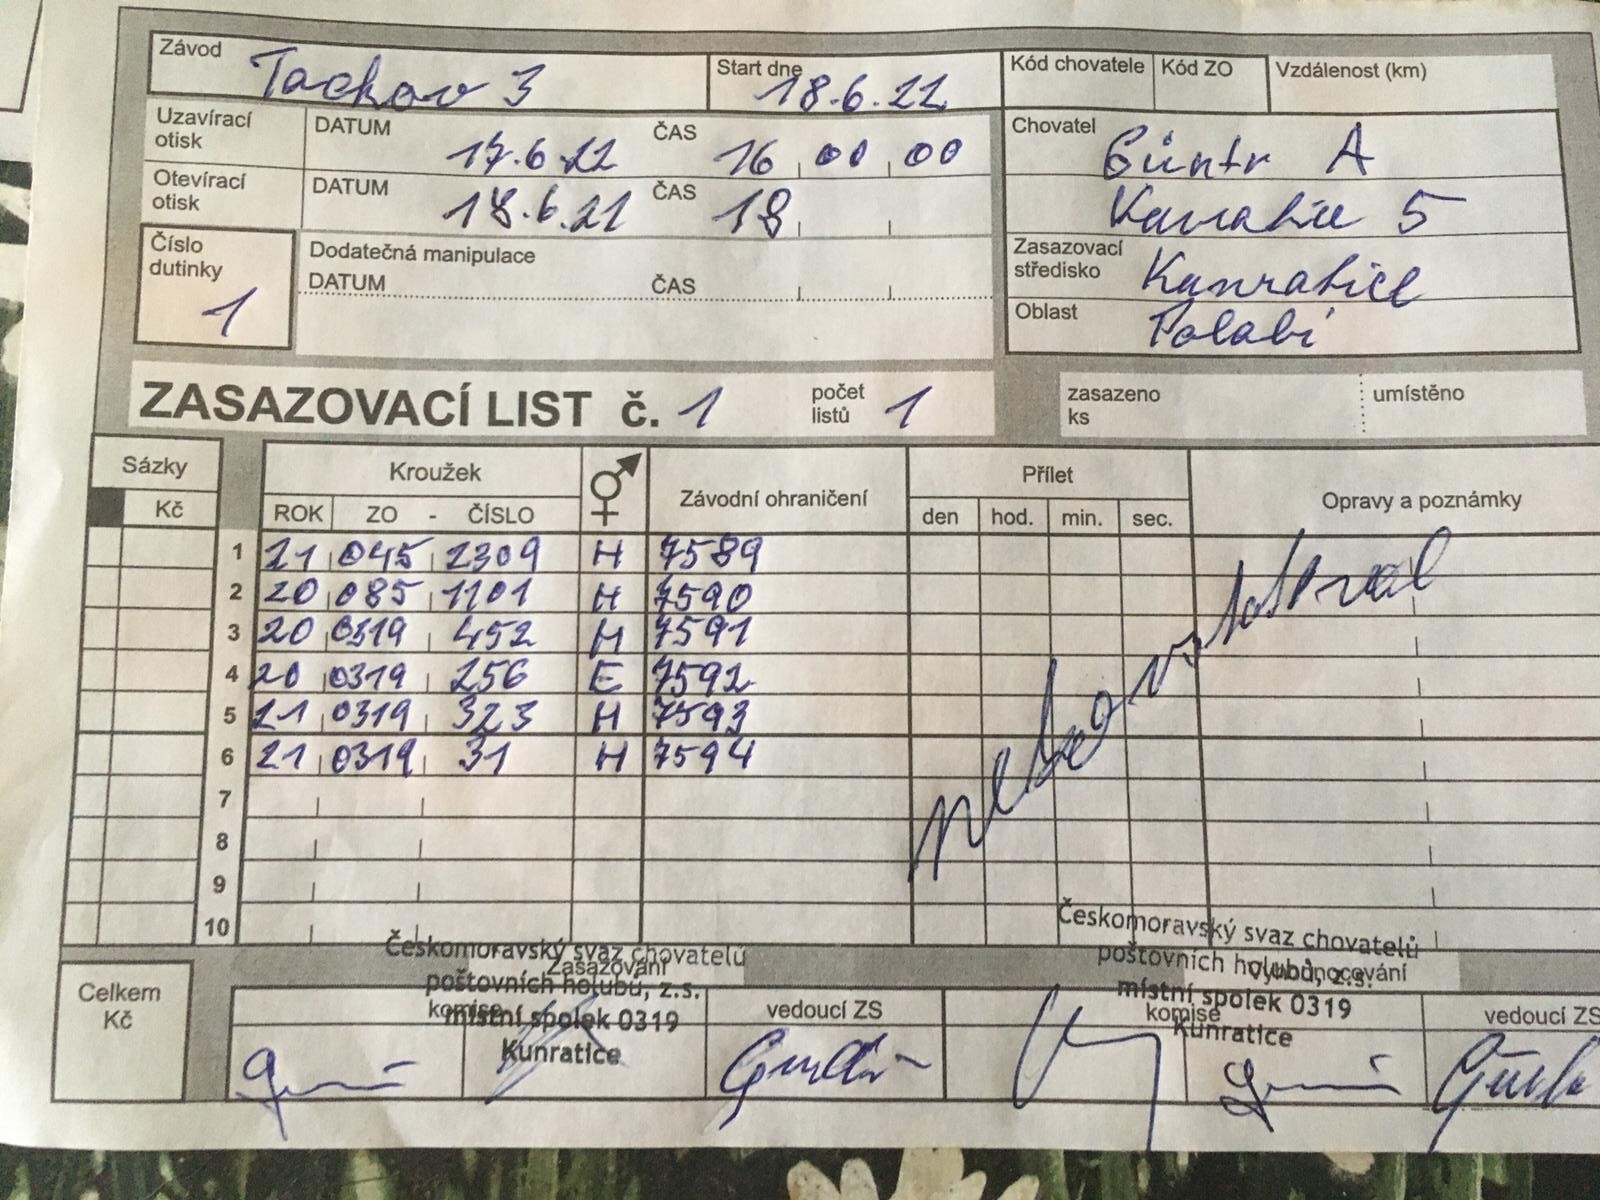 Závod Tachov 3 Start dne 18.6.22 Kód chovatele Kód ZO Vzdálenost (km)
Uzavírací otisk DATUM 17.6.22 ČAS 16 00 00 Chovatel Güntr A
Otevírací otisk DATUM 18.6.21 ČAS 18 5
Číslo dutinky 1 Dodatečná manipulace Zasazovací středisko Kunratice
DATUM ČAS
Oblast Polabí
ZASAZOVACÍ LIST č. 1 počet listů 1 zasazeno ks umístěno
Sázky Kroužek Závodní ohraničení Přílet Opravy a poznámky
Kč ROK ZO - ČÍSLO den hod. min. sec.
1 21 045 2309 H 7589
2 20 085 1101 H 7590
3 20 0319 452 H 7591
4 20 0319 256 E 7592
5 21 0319 323 H 7593
6 21 0319 31 H 7594
7
8
9
10
Českomoravský svaz chovatelů
poštovních holubů, z.s.
místní spolek 0319
Kunratice
Českomoravský svaz chovatelů
poštovních holubů, z.s.
místní spolek 0319
Kunratice
Celkem Kč
Zasazování
komise vedoucí ZS
komise vedoucí ZS